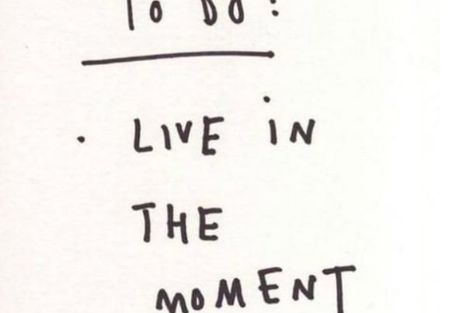 TO DO:
· LIVE iN
THE
MOMENT